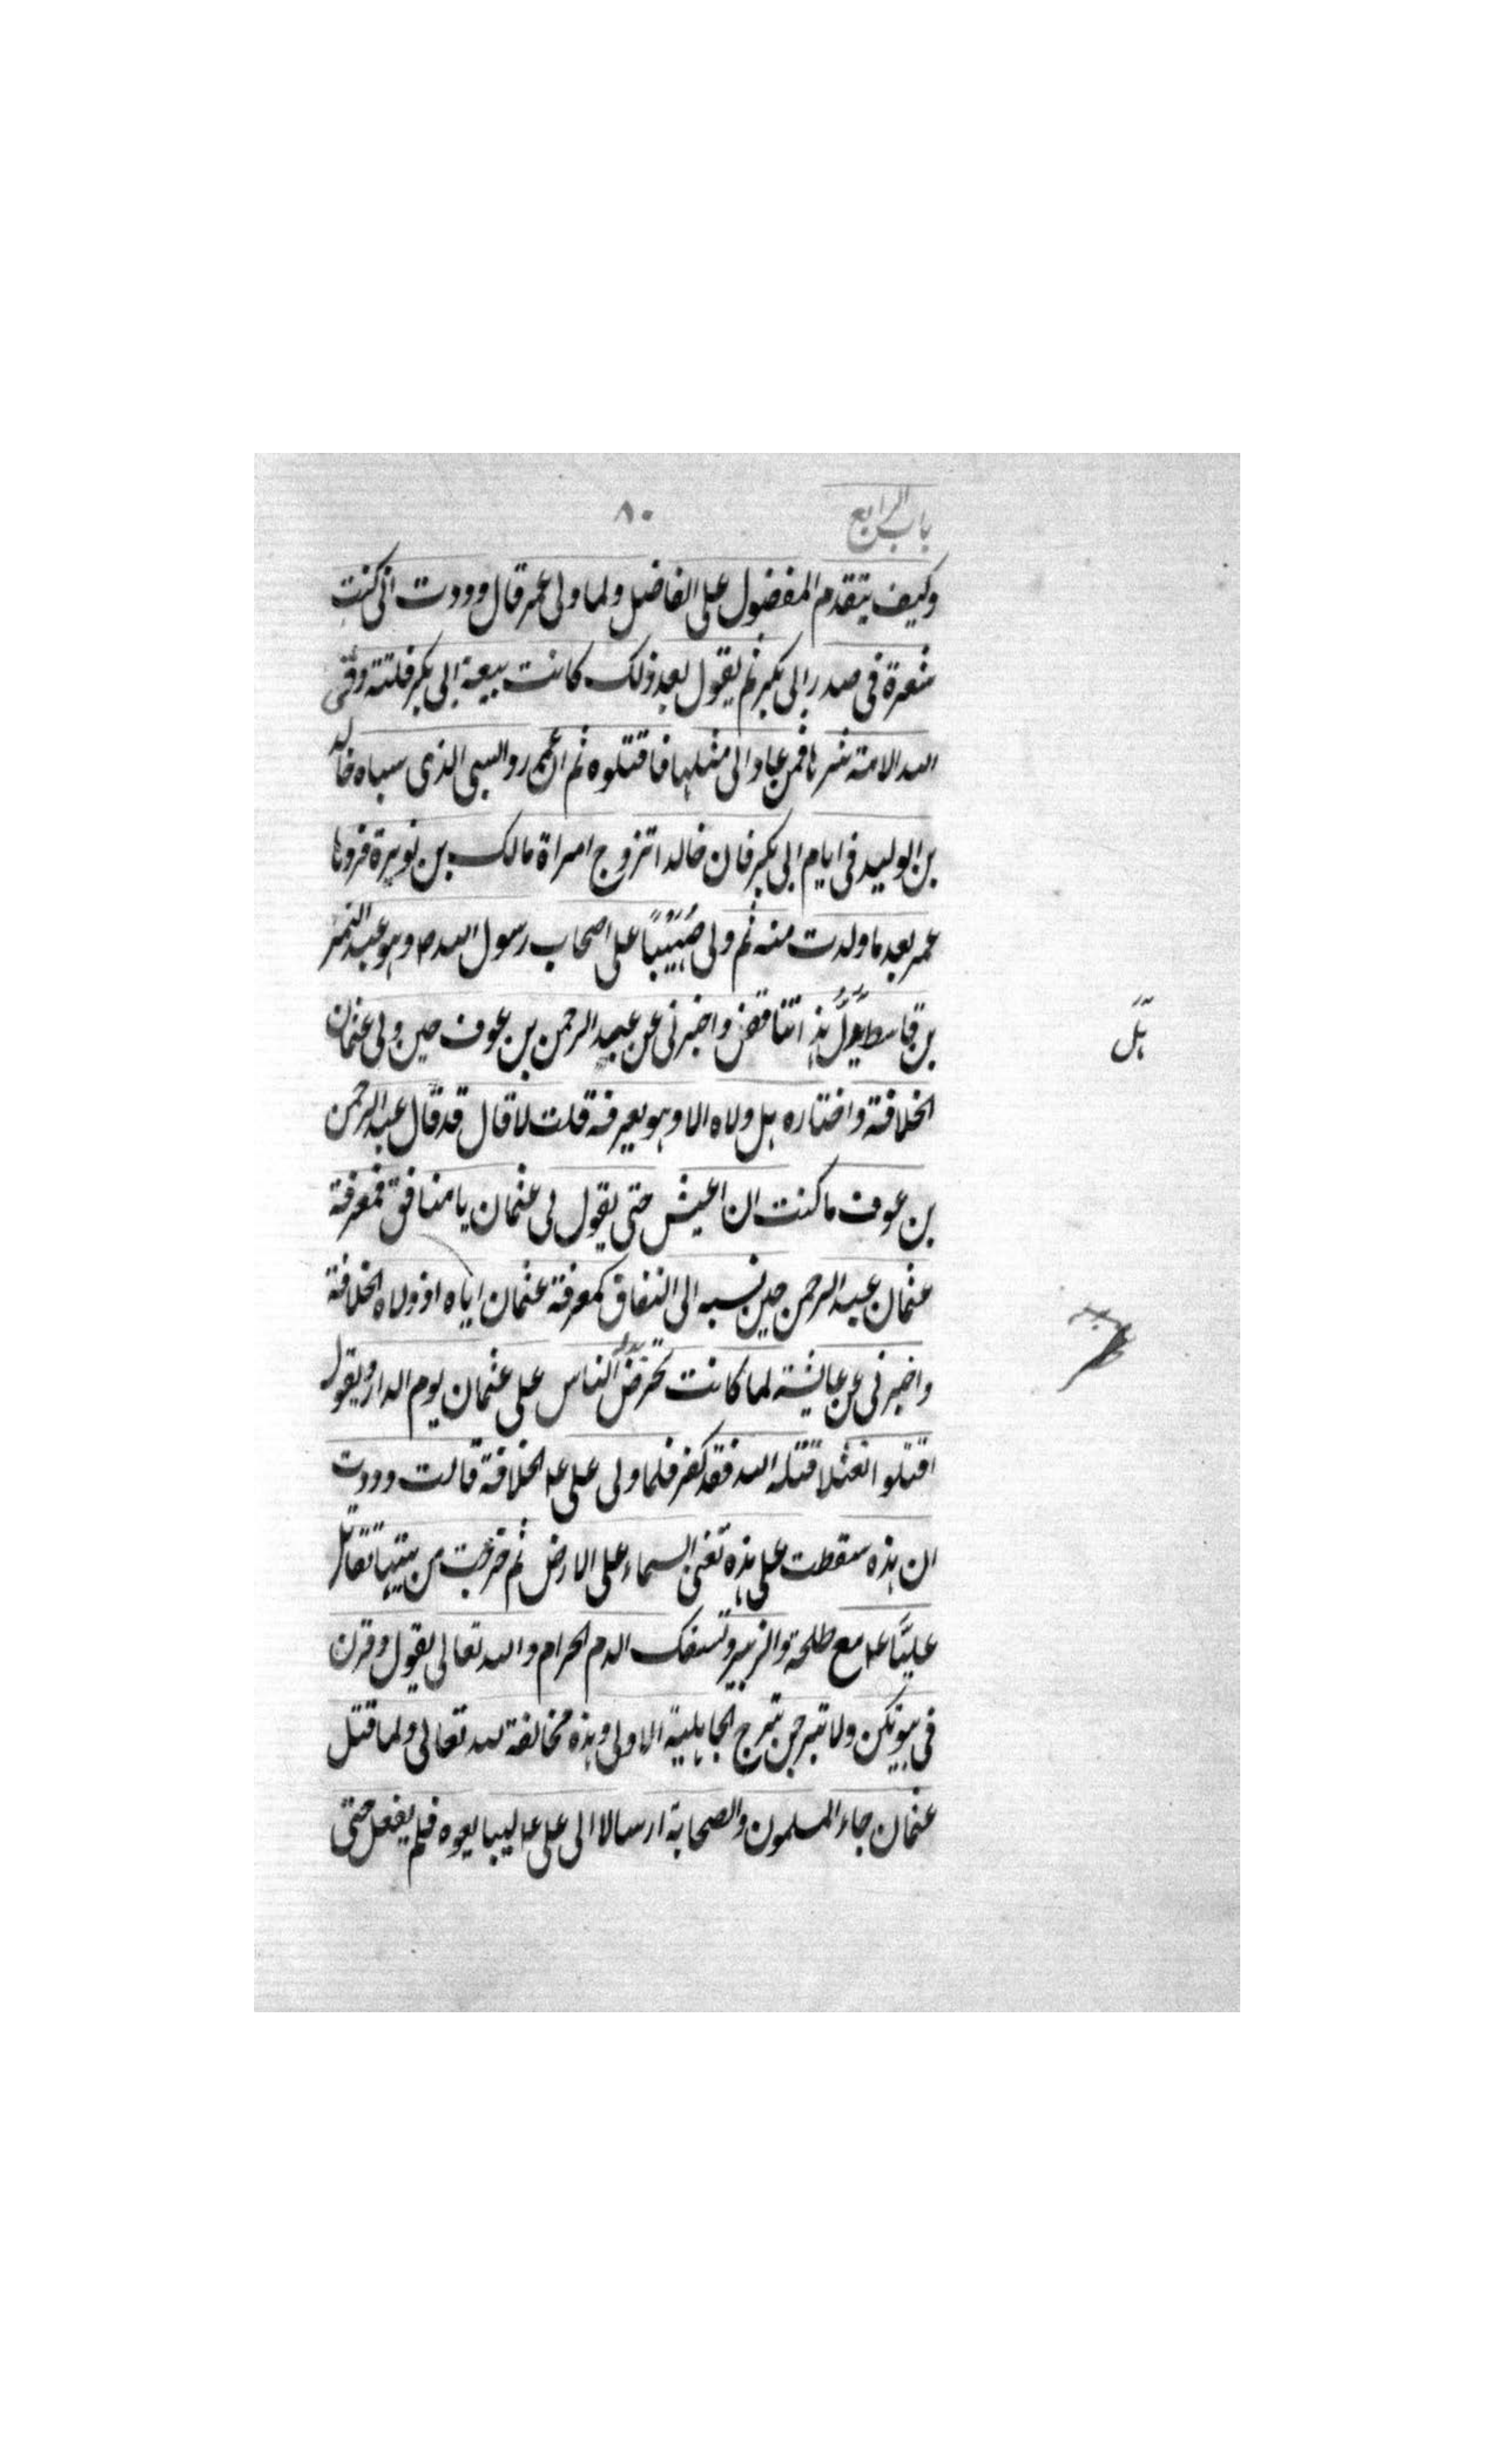 باب الرابع
٨٠
وكيف يتقدم المفضول على الفاضل ولما ولى عمر قال وددت انى كنت
شعرة فى صدر ابى بكر ثم يقول بعد ذلك كانت بيعة ابى بكر فلتة وقى
الله الامة شرها فمن عاد الى مثلها فاقتلوه ثم ان عمر رد السبى الذى سباه خالد
بن الوليد فى ايام ابى بكر فان خالدا تزوج امراة مالك بن نويرة فردها
عمر بعد ما ولدت منه ثم ولى صُهَيْبًا على اصحاب رسول الله ص وهو عبد النمر
بن قاسط هذا تناقض واخبرنى عن عبد الرحمن بن عوف حين ولى عثمان
هل
الخلافة واختاره هل ولاه الا وهو يعرفه قلت لا قال قد قال عبد الرحمن
بن عوف ما كنت ان اعيش حتى يقول لى عثمان يا منافق فمعرفة
عثمان عبد الرحمن حين نسبه الى النفاق كمعرفة عثمان اياه اذ ولاه الخلافة
واخبرنى عن عايشة لما كانت تحرض الناس على عثمان يوم الدار ويقول
اقتلوا نعثلا قتله الله فقد كفر فلما ولى على ع الخلافة قالت وددت
ان هذه سقطت على هذه تعنى السماء على الارض ثم خرجت من بيتها تقاتل
عليًّا ع مع طلحة والزبير وتسفك الدم الحرام والله تعالى يقول وقرن
فى بيوتكن ولا تبرجن تبرج الجاهلية الاولى وهذه مخالفة لله تعالى ولما قتل
عثمان جاء المسلمون والصحابة ارسالا الى على ع ليبايعوه فلم يفعل حتى